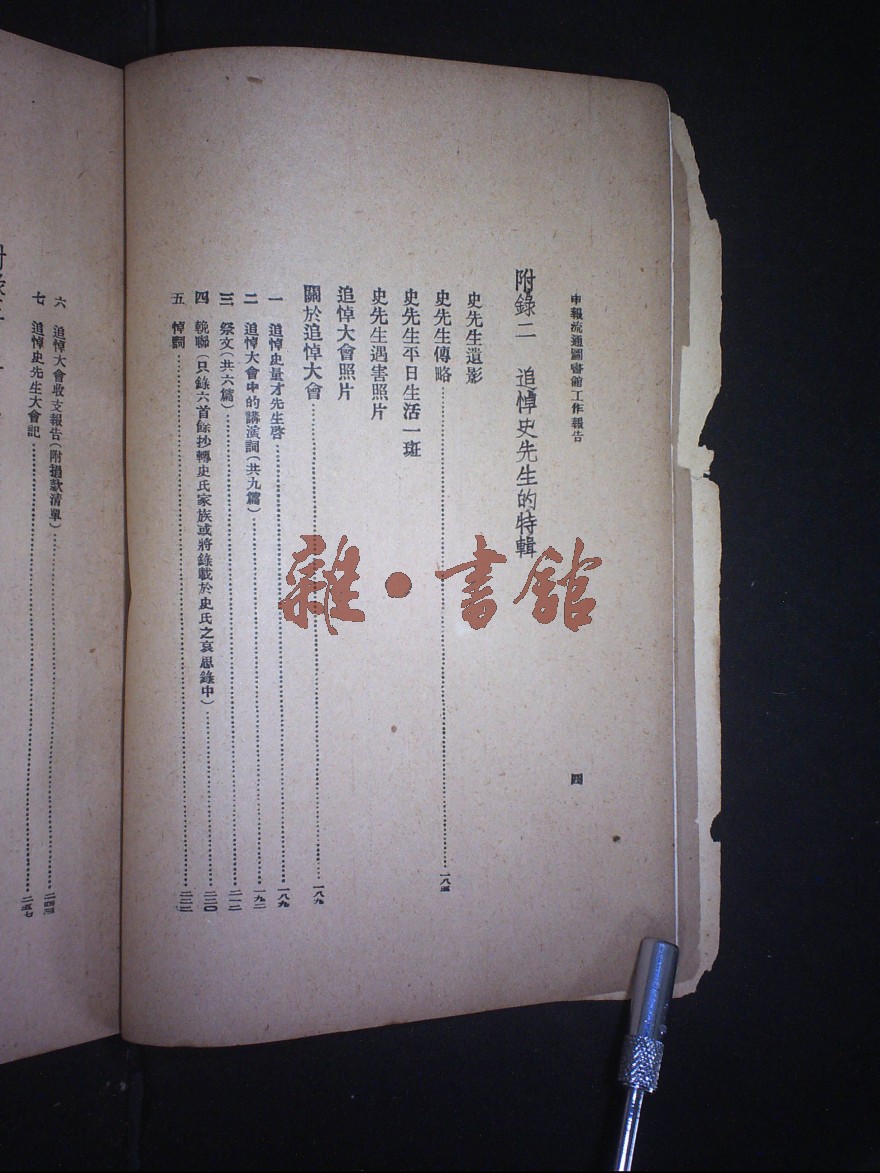 申報流通圖書館工作報告
四
附錄二 追悼史先生的特輯
史先生遺影
史先生傳略……一八五
史先生平日生活一斑
史先生遇害照片
追悼大會照片
關於追悼大會……一八九
一 追悼史量才先生啓……一八九
二 追悼大會中的講演詞(共九篇)……一九二
三 祭文(共六篇)……二一二
四 輓聯(只錄六首餘抄轉史氏家族或將錄載於史氏之哀思錄中)……二二〇
五 悼詞……二二二
六 追悼大會收支報告(附捐款清單)……二四三
七 追悼史先生大會記……二五七
雜·書館